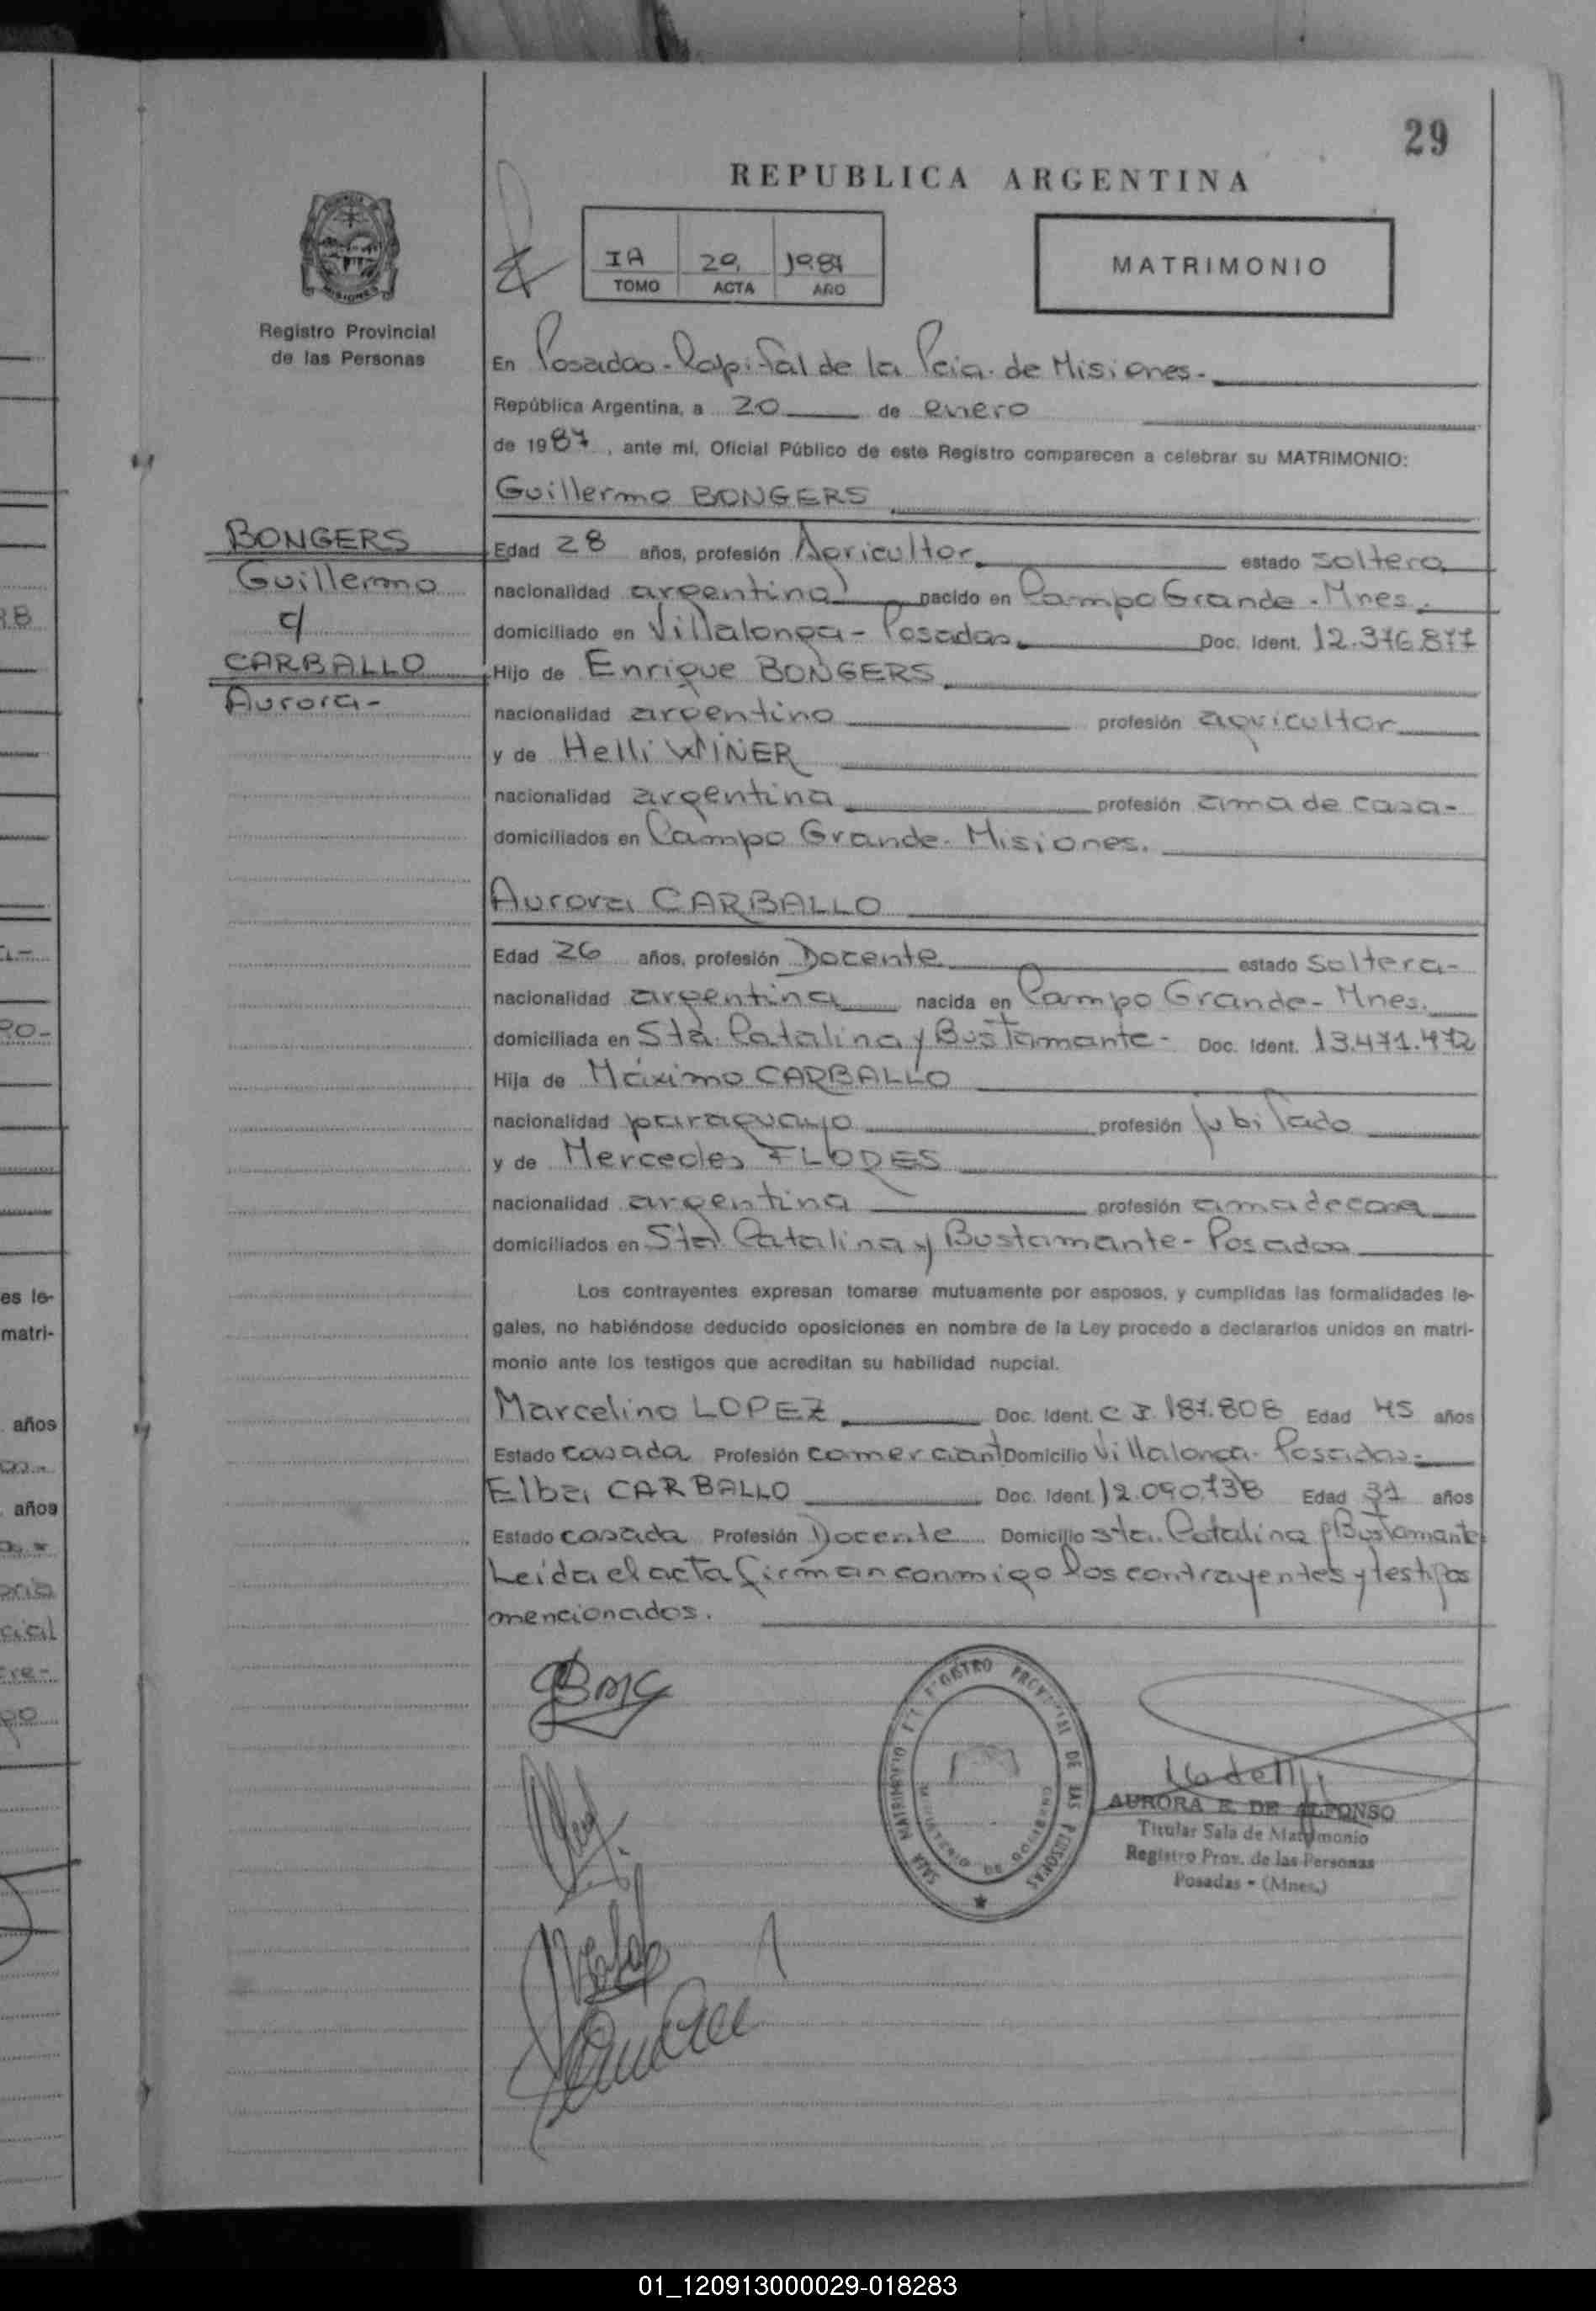 29
REPUBLICA ARGENTINA
IA 29, 1987
TOMO ACTA AÑO
MATRIMONIO
Registro Provincial
de las Personas
En Posadas-Capital de la Pcia. de Misiones.
República Argentina, a 20 de enero
de 1987, ante mí, Oficial Público de este Registro comparecen a celebrar su MATRIMONIO:
Guillermo BONGERS
BONGERS
Guillermo
c/
CARBALLO
Aurora-
Edad 28 años, profesión Agricultor estado soltero
nacionalidad argentino nacido en Campo Grande-Mnes.
domiciliado en Villalonga-Posadas. Doc. Ident. 12.376.877
Hijo de Enrique BONGERS
nacionalidad argentino profesión agricultor
y de Helli WINER
nacionalidad argentina profesión ama de casa-
domiciliados en Campo Grande-Misiones.
Aurora CARBALLO
Edad 26 años, profesión Docente estado soltera-
nacionalidad argentina nacida en Campo Grande-Mnes.
domiciliada en Sta. Catalina y Bustamante- Doc. Ident. 13.471.472
Hija de Máximo CARBALLO
nacionalidad paraguayo profesión jubilado
y de Mercedes FLORES
nacionalidad argentina profesión ama de casa
domiciliados en Sta. Catalina y Bustamante-Posadas
Los contrayentes expresan tomarse mutuamente por esposos, y cumplidas las formalidades le-
gales, no habiéndose deducido oposiciones en nombre de la Ley procedo a declararlos unidos en matri-
monio ante los testigos que acreditan su habilidad nupcial.
Marcelino LOPEZ Doc. Ident. C I. 187.808 Edad 45 años
Estado casada Profesión comerciant Domicilio Villalonga-Posadas-
Elba CARBALLO Doc. Ident. 12.090.738 Edad 31 años
Estado casada Profesión Docente Domicilio sta. Catalina y Bustamante
Leída el acta firman conmigo los contrayentes y testigos
mencionados.
SALA MATRIMONIO REGISTRO PROVINCIAL DE LAS PERSONAS
MINISTERIO DE GOBIERNO
AURORA E. DE ALFONSO
Titular Sala de Matrimonio
Registro Prov. de las Personas
Posadas - (Mnes.)
es le-
matri-
años
años
01_120913000029-018283